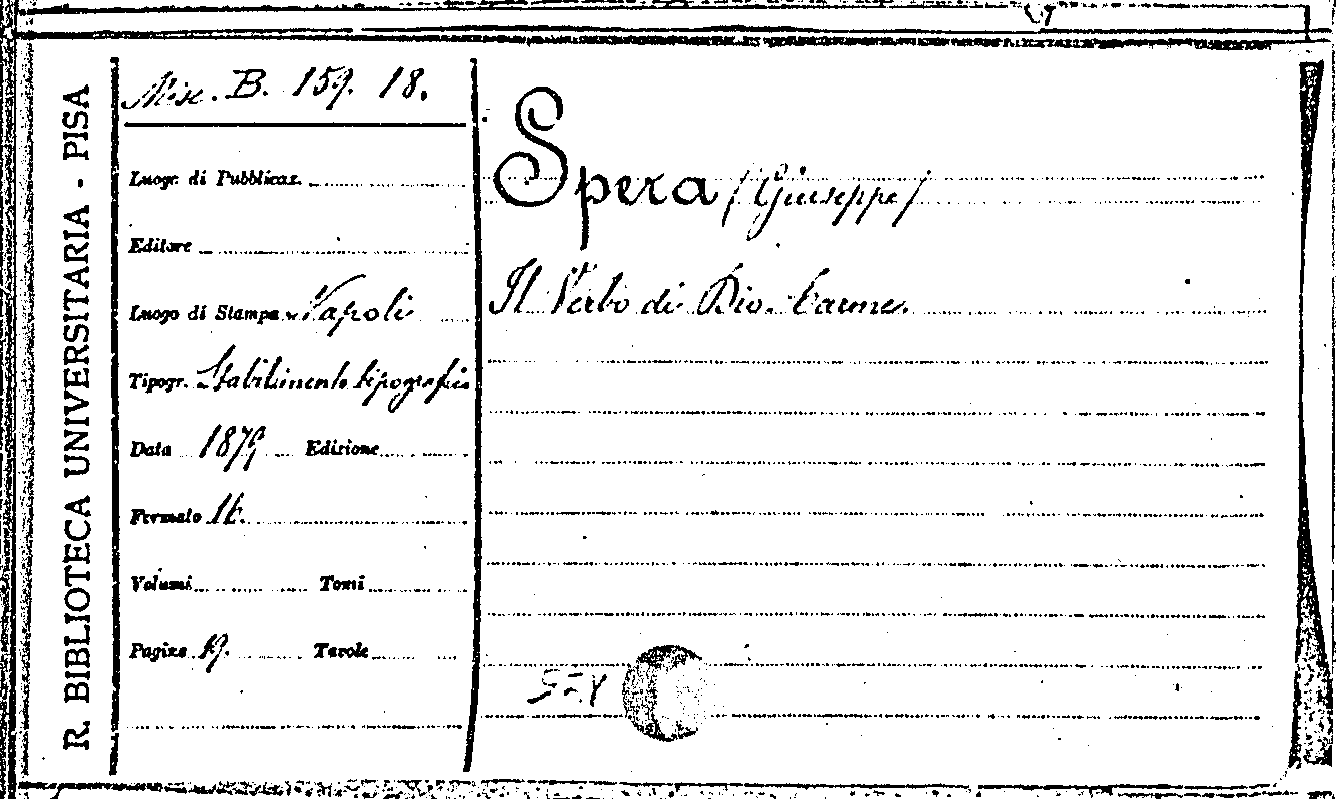 R. BIBLIOTECA UNIVERSITARIA - PISA
Misc. B. 159. 18.
Luogr. di Pubblicaz.
Editore
Luogo di Stampa Napoli
Tipogr. Stabilimento tipografico
Data 1879 Edizione
Formato 16.
Volumi Tomi
Pagine 19. Tavole
Spera (Giuseppe)
Il Verbo di Dio. Carme.